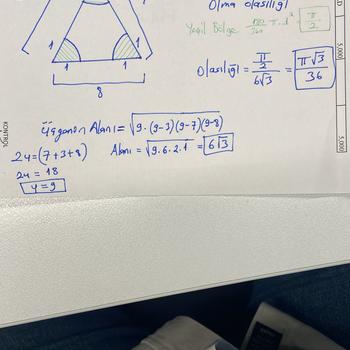 Olma olasılığı
Yeşil Bölge 180/360 π.1² = π/2
Olasılığı = (π/2)/(6√3) = π√3/36
1 1
1 1
8
üçgenin Alanı = √9.(9-3)(9-7)(9-8)
2u=(7+3+8)
Alanı = √9.6.2.1 = 6√3
2u = 18
u=9
KONTROL
5.000
5.000